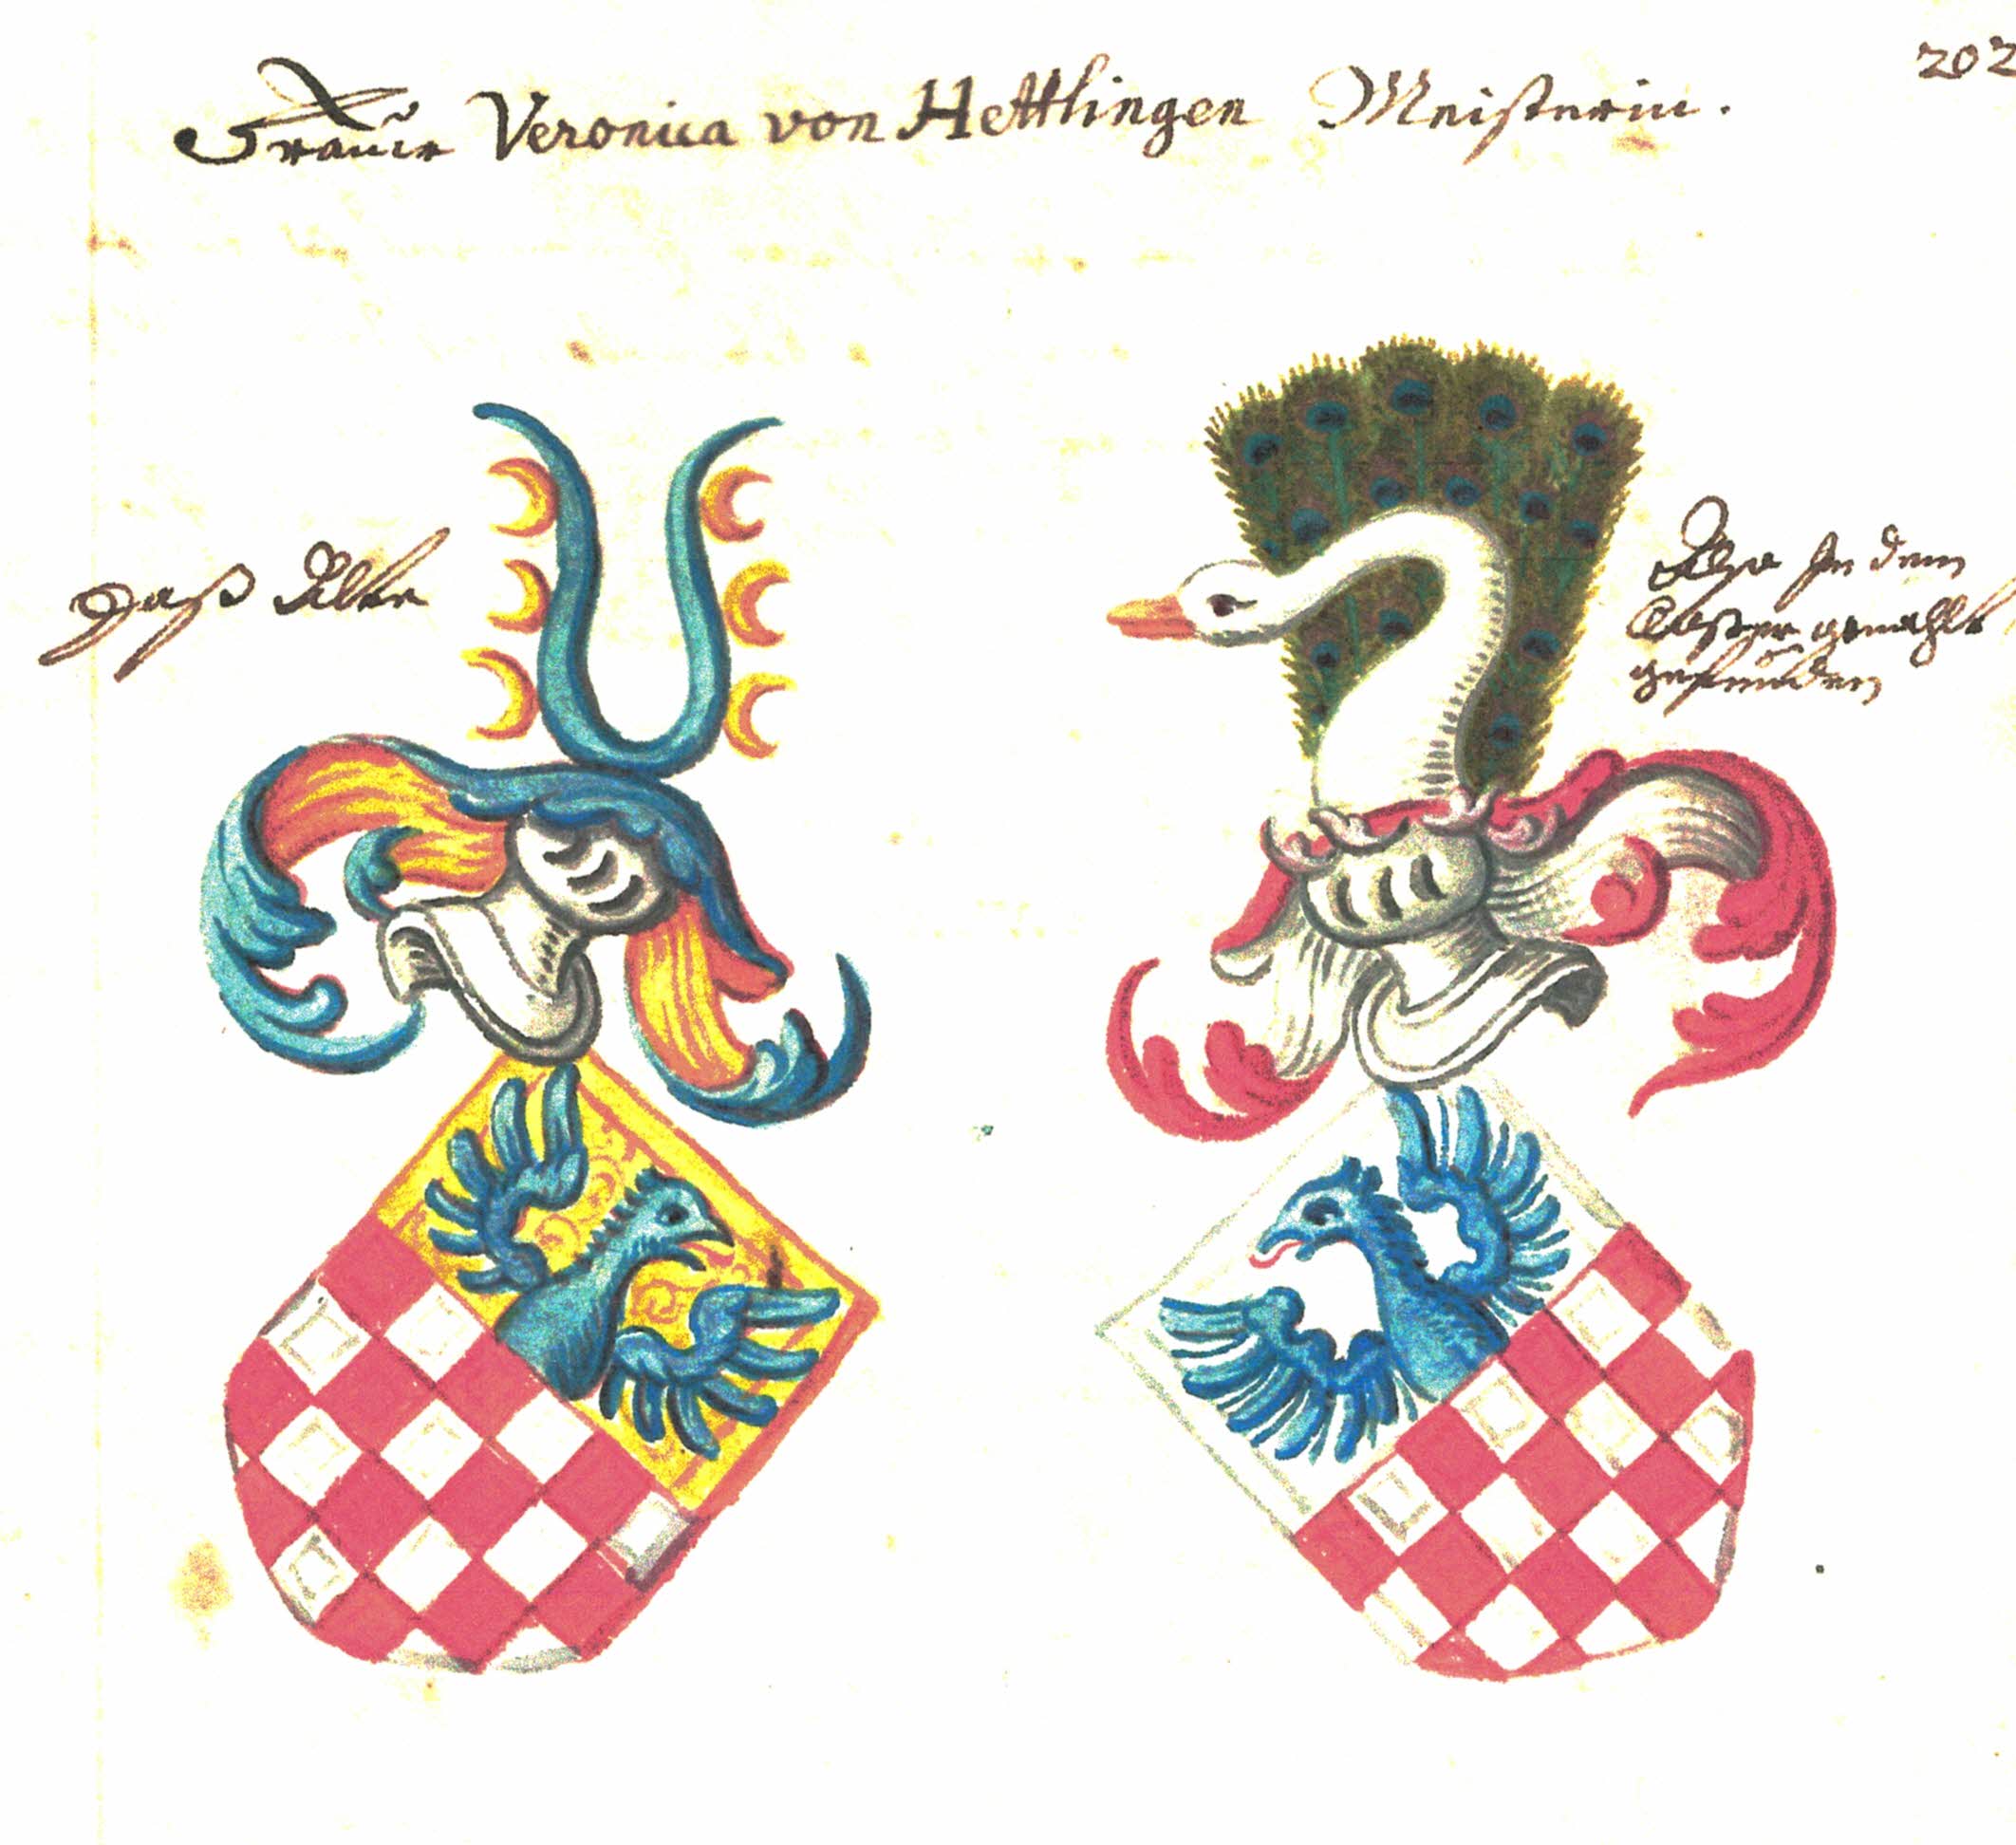 202
Frauw Veronica von Hettlingen Meisterin.
Daß Alte
Also in dem
Closter gemahlt
gefunden